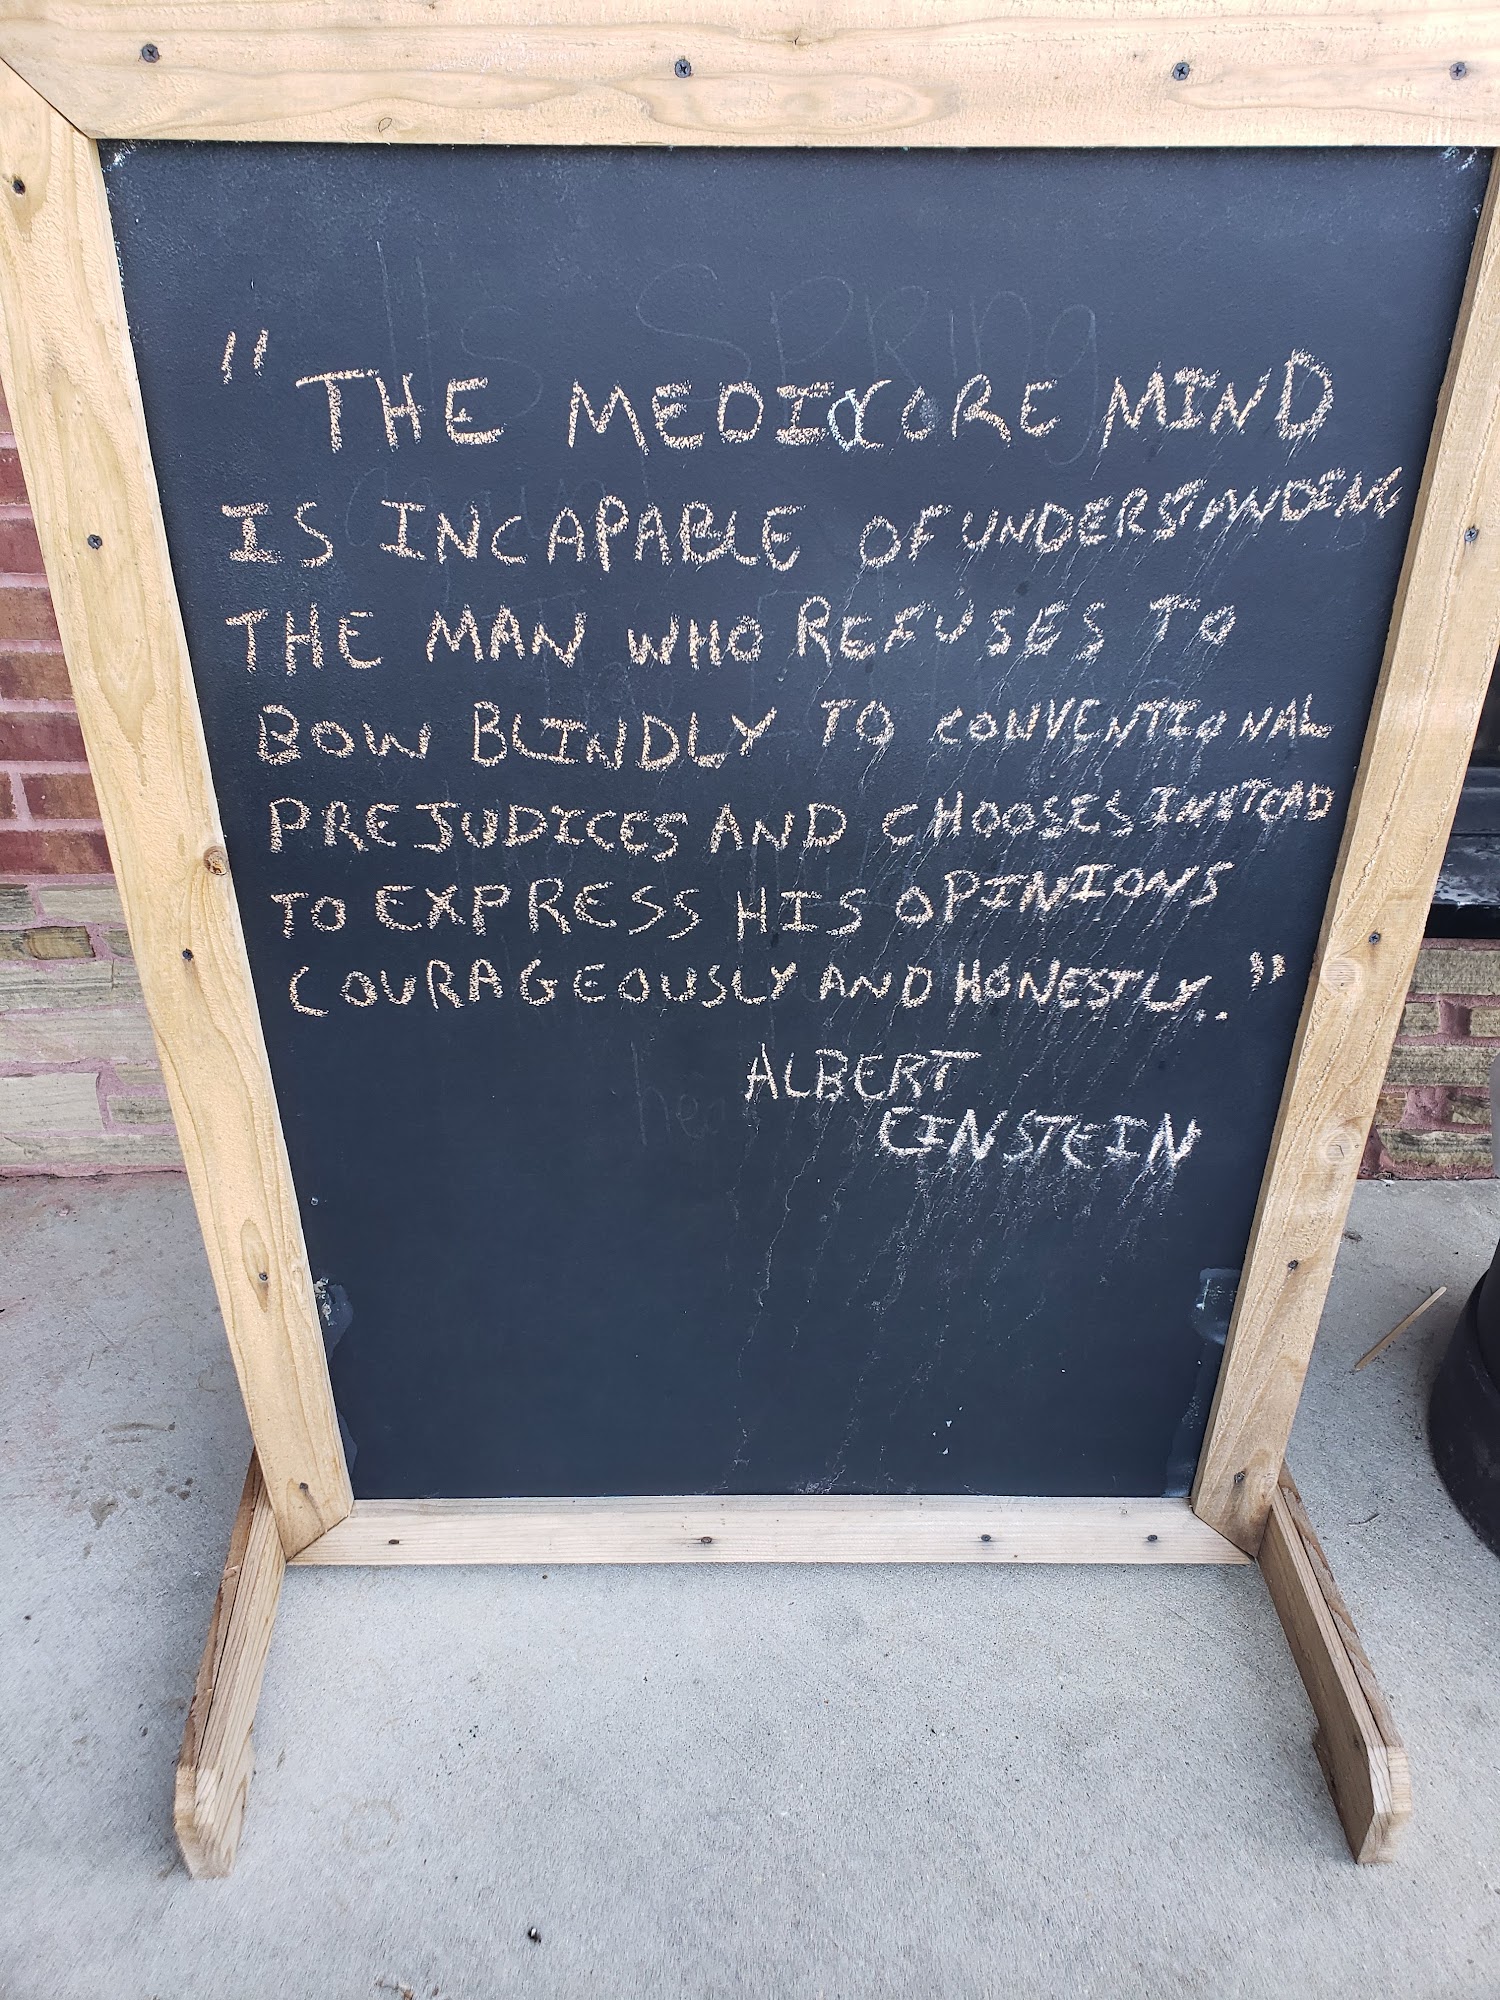 Its Spring
"THE MEDIOCORE MIND
IS INCAPABLE OF UNDERSTANDING
THE MAN WHO REFUSES TO
BOW BLINDLY TO CONVENTIONAL
PREJUDICES AND CHOOSES INSTEAD
TO EXPRESS HIS OPINIONS
COURAGEOUSLY AND HONESTLY.."
ALBERT
EINSTEIN